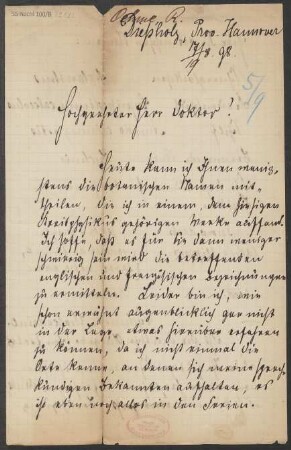 Diepholz, Prov. Hannover
19/8 98.
5/9
Hochgeehrter Herr Doktor!
Heute kann ich Ihnen wenig-
stens die botanischen Namen mit-
theilen, die ich in einem, dem hiesigen
Kreisphysikus gehörigen Werke auffand.
Ich hoffe, daß es für Sie dann weniger
schwierig sein wird die betreffenden
englischen und französischen Bezeichnungen
zu ermitteln. Leider bin ich, wie
schon erwähnt augenblicklich gar nicht
in der Lage, etwas hierüber erfahren
zu können, da ich nicht einmal die
Orte kenne, an denen sich meine sprach-
kundigen Bekannten aufhalten; es
ist eben noch alles in den Ferien.